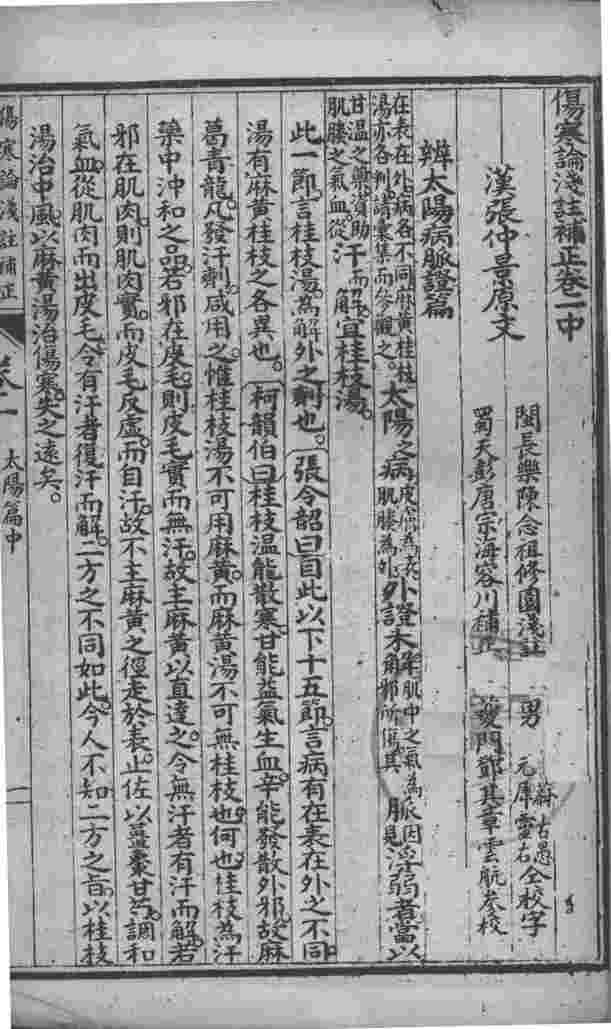 傷寒論淺註補正卷一中
漢張仲景原文
閩長樂陳念祖修園淺註
男
蔚古愚
元犀靈石
仝校字
蜀天彭唐宗海容川補正
夔門鄭其章雲航參校
辨太陽病脈證篇
在表在外病各不同麻黃桂枝
湯亦各判請彙集而參觀之
太陽之病
皮膚為表
肌腠為外
外證未解
肌中之氣為
邪所傷其
脈
因見
浮弱者當以
甘溫之藥資助
肌腠之氣血從
汗而解宜桂枝湯
此一節言桂枝湯為解外之劑也張令韶曰自此以下十五節言病有在表在外之不同
湯有麻黃桂枝之各異也柯韻伯曰桂枝溫能散寒甘能益氣生血辛能發散外邪故麻
葛青龍凡發汗劑咸用之惟桂枝湯不可用麻黃而麻黃湯不可無桂枝也何也桂枝為汗
藥中沖和之品若邪在皮毛則皮毛實而無汗故主麻黃以直達之今無汗者有汗而解若
邪在肌肉則肌肉實而皮毛反虛而自汗故不主麻黃之徑走於表止佐以薑棗甘芍調和
氣血從肌肉而出皮毛今有汗者復汗而解二方之不同如此今人不知二方之旨以桂枝
湯治中風以麻黃湯治傷寒失之遠矣
傷寒論淺註補正
卷一
太陽篇中
一